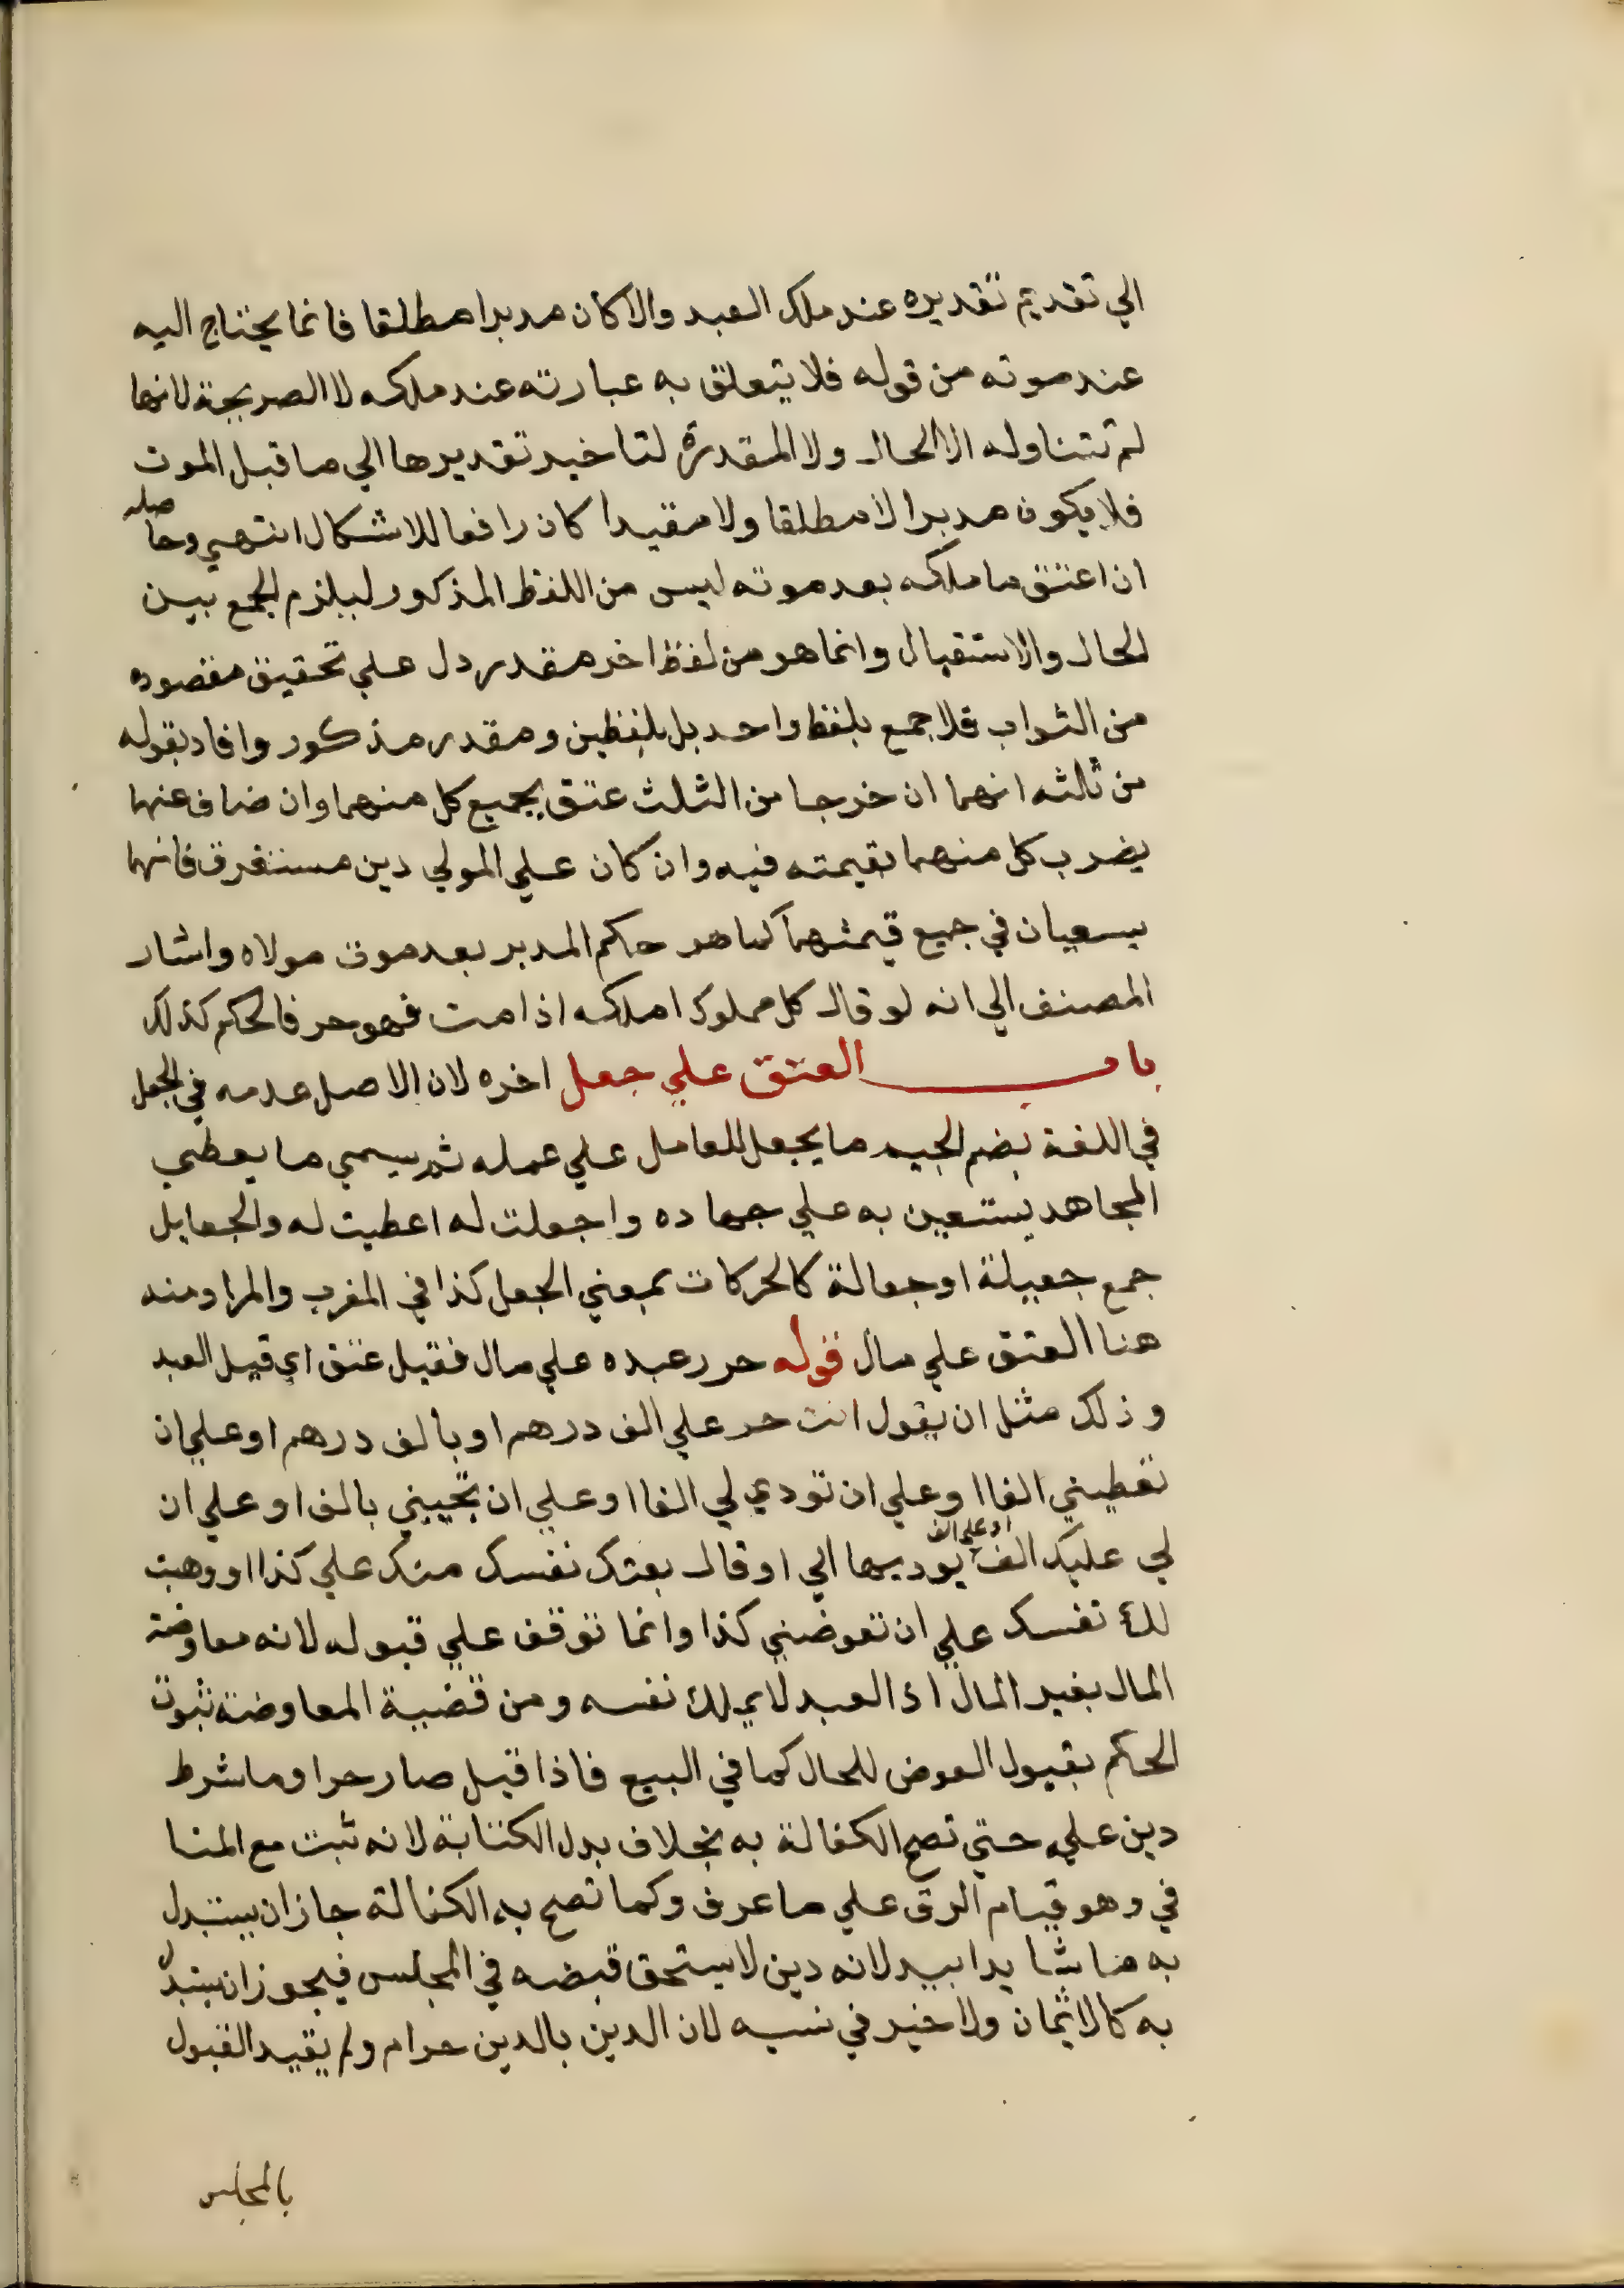 الي تقديم تقديره عند ملك العبد والا كان مدبرا مطلقا فانما يحتاج اليه
عند موته من قوله فلا يتعلق به عبارته عند ملكه لا الصريحة لانها
لم تتناوله الا الحال ولا المقدرة لتاخير تقديرها الي ما قبل الموت
فلا يكون مدبرا لا مطلقا ولا مقيدا كان رافعا للاشكال انتهي وحاصله
ان اعتق ما ملكه بعد موته ليس من اللفظ المذكور ليلزم الجمع بين
الحال والاستقبال وانما هو من لفظ اخر مقدر دل علي تحقيق مقصوده
من الثواب فلا جمع بلفظ واحد بل بلفظين ومقدر مذكور وافاد بقوله
من ثلثه انهما ان خرجا من الثلث عتق جميع كل منهما وان ضاف عنهما
يضرب كل منهما بقيمته فيه وان كان علي المولي دين مستغرق فانهما
يسعيان في جميع قيمتهما كما هو حكم المدبر بعد موت مولاه واشار
المصنف الي انه لو قال كل مملوك املكه اذا مت فهو حر فالحكم كذلك
باب العتق علي جعل اخره لان الاصل عدمه في الجعل
في اللغة بضم الجيم ما يجعل للعامل علي عمله ثم سمي ما يعطي
المجاهد يستعين به علي جهاده واجعلت له اعطيت له والجعايل
جمع جعيلة او جعالة كالحركات بمعني الجعل كذا في المغرب والمراد منه
هنا العتق علي مال قوله حرر عبده علي مال فقبل عتق اي قبل العبد
وذلك مثل ان يقول انت حر علي الف درهم او بالف درهم او علي ان
تعطيني الفا او علي ان تودي لي الفا او علي ان تجيبني بالف او علي ان
لي عليك الف او علي الف يوديها الي او قال بعتك نفسك منك علي كذا او وهبت
لك نفسك علي ان تعوضني كذا وانما توقف علي قبوله لانه معاوضة
المال بغير المال اذ العبد لا يملك نفسه ومن قضية المعاوضة ثبوت
الحكم بقبول العوض للحال كما في البيع فاذا قبل صار حرا وما شرط
دين عليه حتي تصح الكفالة به بخلاف بدل الكتابة لانه ثبت مع المنا
في وهو قيام الرق علي ما عرف وكما تصح به الكفالة جاز ان يستبدل
به ما شا يدا بيد لانه دين لا يستحق قبضه في المجلس فيجوز ان يستبدل
به كالاثمان ولا خير في نسيه لان الدين بالدين حرام ولم يقيد القبول
بالمجلس